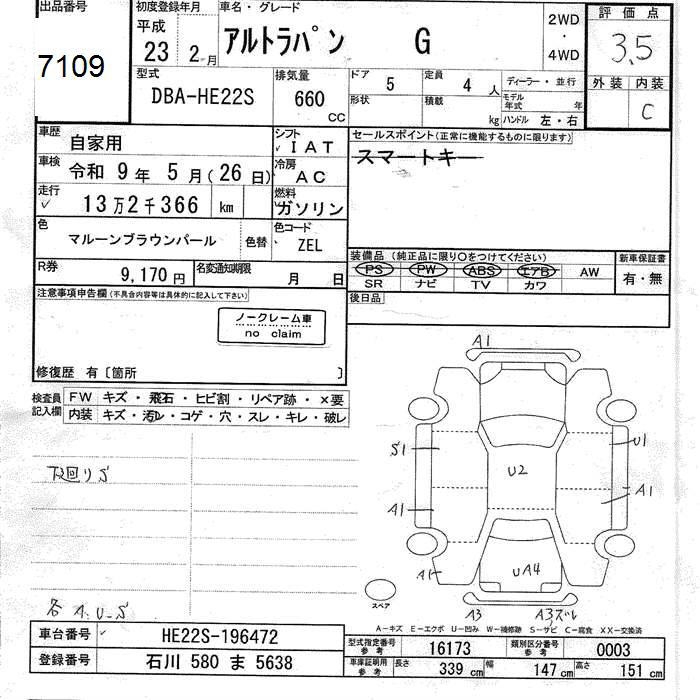 出品番号
7109
初度登録年月
平成
23 2月
車名・グレード
アルトラパン G
2WD
・
4WD
評価点
3.5
外装 内装
C
型式
DBA-HE22S
排気量
660
CC
ドア 5 定員 4 人
形状 積載 kg
ディーラー・並行
モデル年式 年
ハンドル 左・右
車歴 自家用
シフト IAT
セールスポイント(正常に機能するものに限ります)
スマートキー
車検 令和 9年 5月(26日)
冷房 AC
走行 13万2千366 km
燃料 ガソリン
色 マルーンブラウンパール 色替
色コード ZEL
装備品(純正品に限り○をつけてください) 新車保証書
PS PW ABS エアB AW 有・無
SR ナビ TV カワ
R券 9,170円
名変通知期限 月 日
後日品
注意事項申告欄(不具合内容等は具体的に記入して下さい)
ノークレーム車
no claim
修復歴 有〔箇所 〕
検査員記入欄
FW キズ・飛石・ヒビ割・リペア跡・×要
内装 キズ・汚レ・コゲ・穴・スレ・キレ・破レ
A1
S1
U1
下回りS
U2
A1
A1
A1
UA4
スペア
各A.U.S
A3
A3ズレ
A−キズ E−エクボ U−凹み W−補修跡 S−サビ C−腐食 XX−交換済
車台番号 HE22S-196472
登録番号 石川 580 ま 5638
型式指定番号 参考 16173 類別区分番号 参考 0003
車庫証明用 参考 長さ 339 cm 幅 147 cm 高さ 151 cm